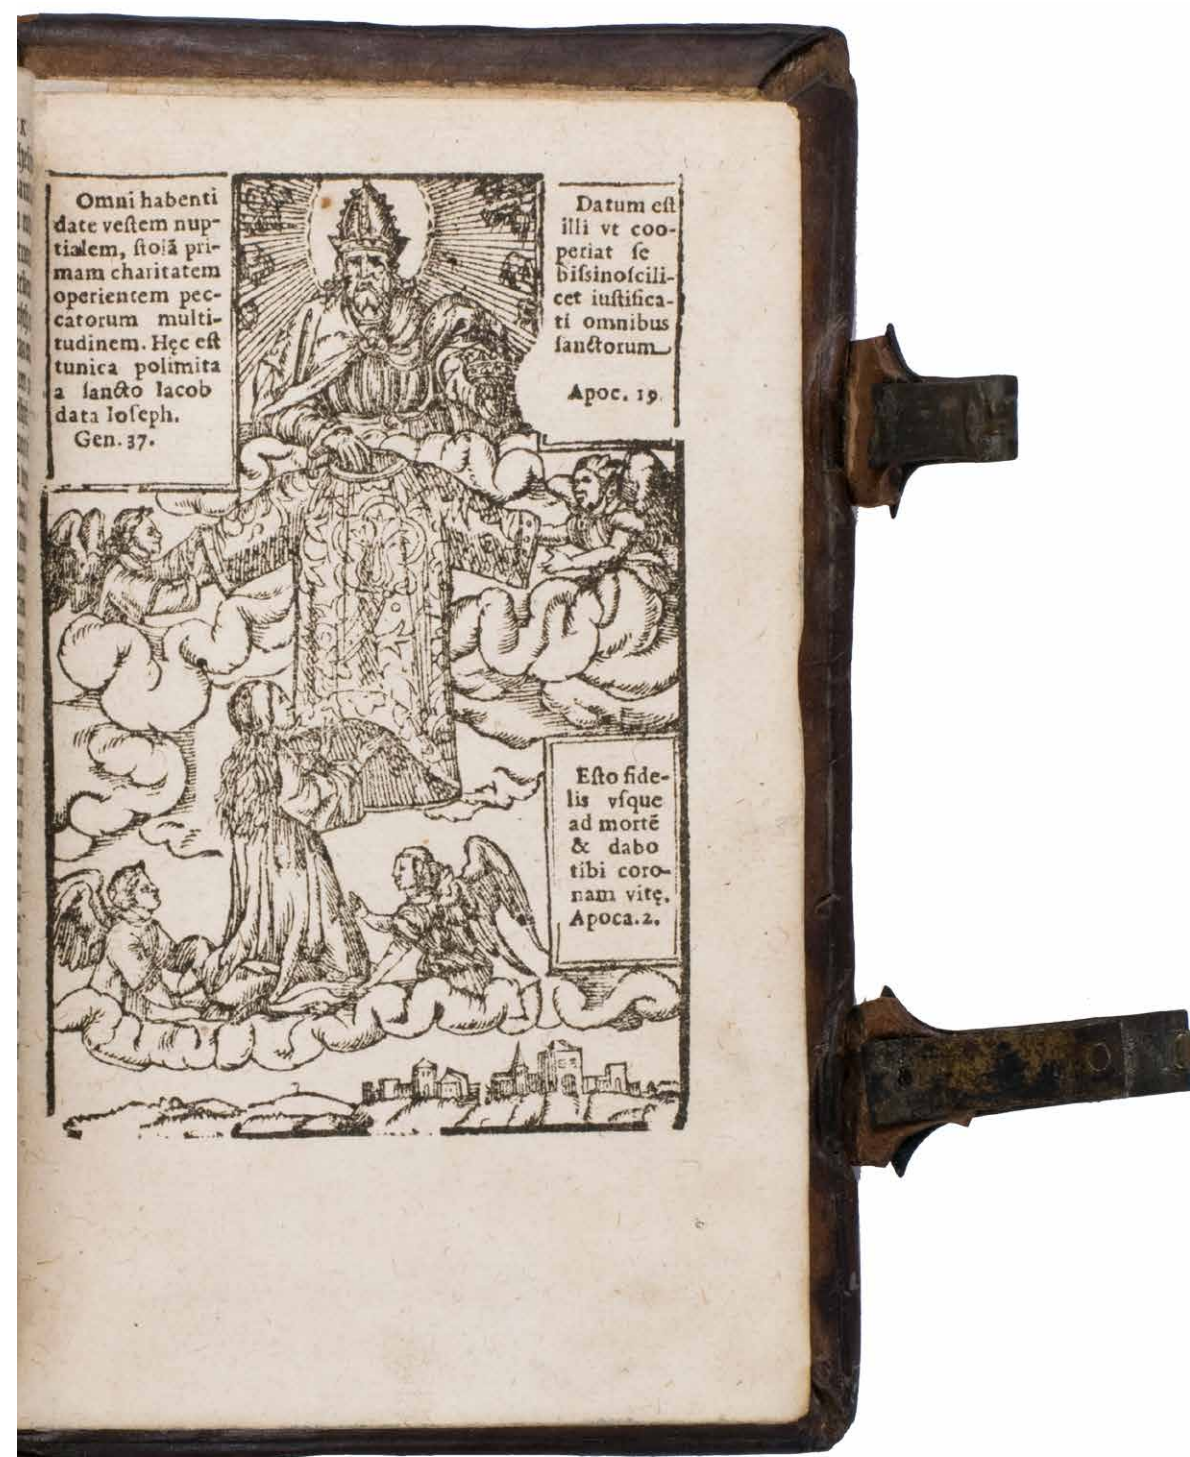 Omni habenti
date veſtem nup-
tialem, ſtolã pri-
mam charitatem
operientem pec-
catorum multi-
tudinem. Hęc eſt
tunica polimita
a ſancto Iacob
data Ioſeph.
Gen. 37.
Datum eſt
illi vt coo-
periat ſe
biſsinoſcili-
cet iuſtifica-
ti omnibus
ſanctorum
Apoc. 19.
Eſto fide-
lis vſque
ad mortẽ
& dabo
tibi coro-
nam vitę.
Apoca. 2.